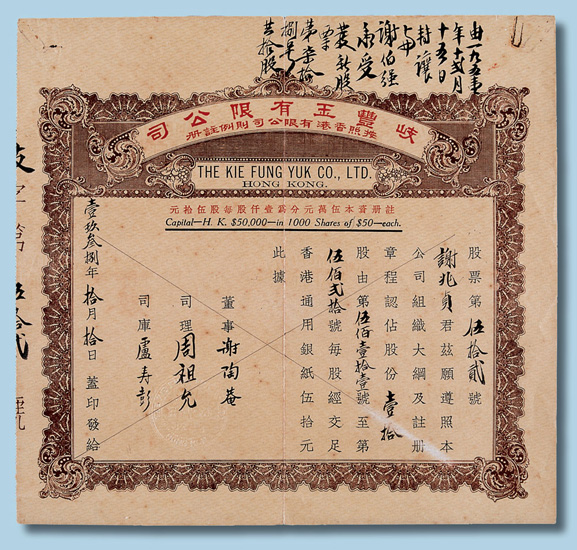 十五日
謝伯強
承受
第柒拾
共拾股
岐豐玉有限公司
按照香港有限公司則例註册
THE KIE FUNG YUK CO., LTD.
HONG KONG.
註册資本伍萬元分為壹仟股每股伍拾元
Capital—H. K. $50,000—in 1000 Shares of $50—each.
股票第伍拾貳號
謝兆貞君茲願遵照本
公司組織大綱及註册
章程認佔股份壹拾
股由第伍佰壹拾壹號至第
伍佰貳拾號每股經交足
香港通用銀紙伍拾元
此據
董事謝陶菴
司理周祖允
司庫盧寿彭
壹玖叁捌年拾月拾日蓋印發給
字第伍拾貳